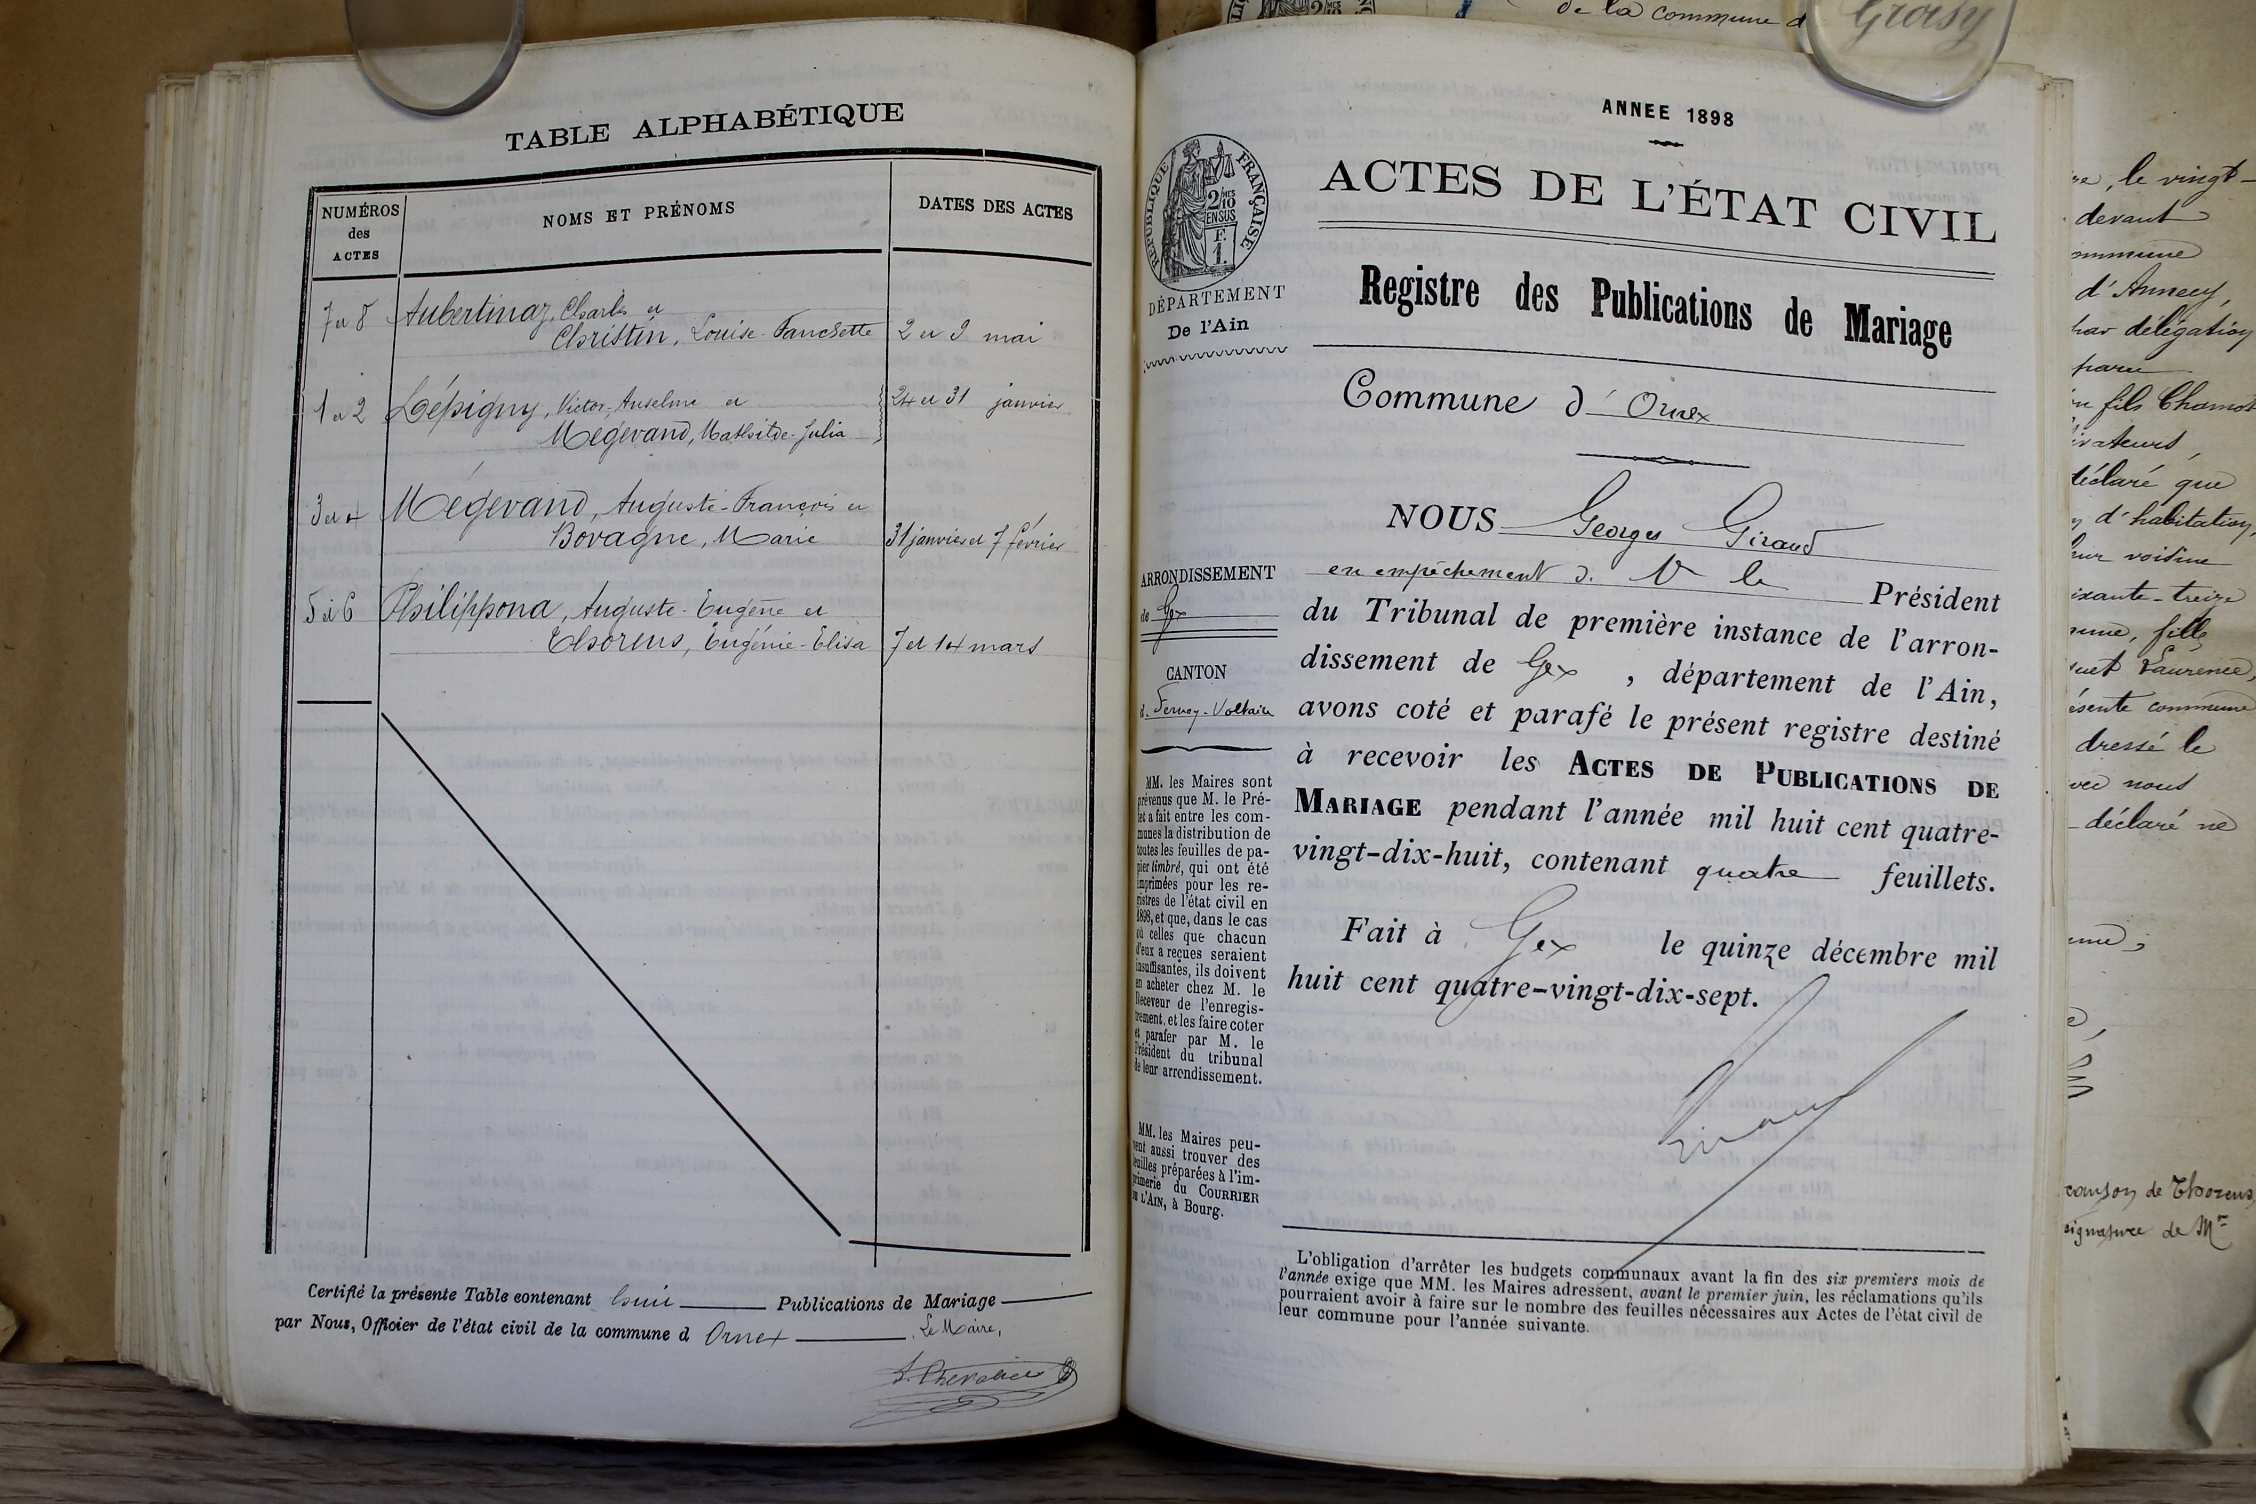 TABLE ALPHABÉTIQUE
NUMÉROS
des
ACTES
NOMS ET PRÉNOMS
DATES DES ACTES
7 et 8 Aubertinaz, Charles et
Christin, Louise-Fanchette 2 et 9 mai
1 et 2 Lépigny, Victor-Anselme et 24 et 31 janvier
Mégevand, Mathilde-Julia
3 et 4 Mégevand, Auguste-François et
Bovagne, Marie 31 janvier et 7 février
5 et 6 Philippona, Auguste-Eugène et
Thorens, Eugénie-Elisa 7 et 14 mars
Certifié la présente Table contenant huit Publications de Mariage
par Nous, Officier de l'état civil de la commune d Ornex Le Maire,
ANNEE 1898
RÉPUBLIQUE FRANÇAISE
2/10
MES
EN SUS
F.
1.
ACTES DE L'ÉTAT CIVIL
Registre des Publications de Mariage
DÉPARTEMENT
De l'Ain
Commune d' Ornex
NOUS Georges Giraud
en empêchement d. Mr le Président
du Tribunal de première instance de l'arron-
dissement de Gex , département de l'Ain,
avons coté et parafé le présent registre destiné
à recevoir les ACTES DE PUBLICATIONS DE
MARIAGE pendant l'année mil huit cent quatre-
vingt-dix-huit, contenant quatre feuillets.
Fait à Gex le quinze décembre mil
huit cent quatre-vingt-dix-sept.
ARRONDISSEMENT
de Gex
CANTON
d. Ferney-Voltaire
MM. les Maires sont
prévenus que M. le Pré-
fet a fait entre les com-
munes la distribution de
toutes les feuilles de pa-
pier timbré, qui ont été
imprimées pour les re-
gistres de l'état civil en
1898, et que, dans le cas
où celles que chacun
d'eux a reçues seraient
insuffisantes, ils doivent
en acheter chez M. le
Receveur de l'enregis-
trement, et les faire coter
et parafer par M. le
Président du tribunal
de leur arrondissement.
MM. les Maires peu-
vent aussi trouver des
feuilles préparées à l'im-
primerie du COURRIER
DE L'AIN, à Bourg.
L'obligation d'arrêter les budgets communaux avant la fin des six premiers mois de
l'année exige que MM. les Maires adressent, avant le premier juin, les réclamations qu'ils
pourraient avoir à faire sur le nombre des feuilles nécessaires aux Actes de l'état civil de
leur commune pour l'année suivante.
de la commune d
Groisy
le vingt-
devant
commune
d'Annecy,
par délégation
paru
fils Chamot
déclaré que
d'habitation,
voisine
soixante-treize
fille
Laurence,
présente commune
dressé le
nous
déclaré ne
de Thorens,
signature de Mr